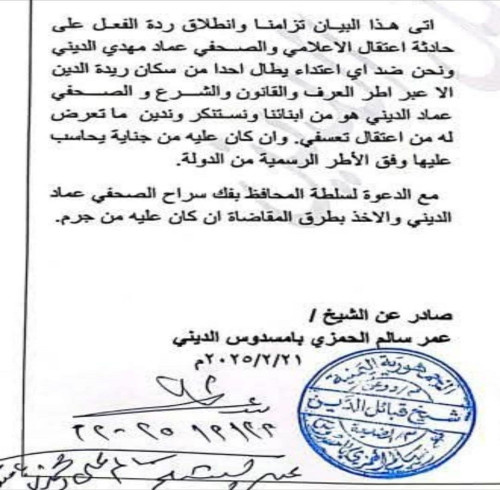 اتى هذا البيان تزامنا وانطلاق ردة الفعل على
حادثة اعتقال الاعلامي والصحفي عماد مهدي الديني
ونحن ضد اي اعتداء يطال احدا من سكان ريدة الدين
الا عبر اطر العرف والقانون والشرع و الصحفي
عماد الديني هو من ابنائنا ونستنكر وندين ما تعرض
له من اعتقال تعسفي. وان كان عليه من جناية يحاسب
عليها وفق الأطر الرسمية من الدولة.
مع الدعوة لسلطة المحافظ بفك سراح الصحفي عماد
الديني والاخذ بطرق المقاضاة ان كان عليه من جرم.
صادر عن الشيخ /
عمر سالم الحمزي بامسدوس الديني
٢٠٢٥/٢/٢١م
الجمهورية اليمنية
شيخ قبائل الدين